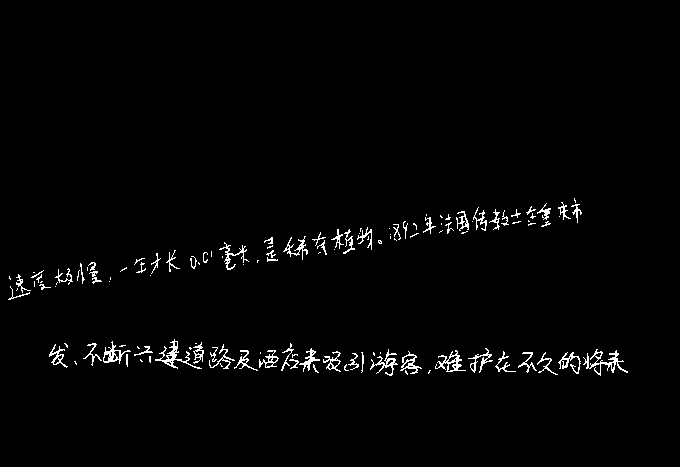 速度极慢，一年才长0.01毫米，是稀有植物。1892年法国传教士在重庆市
发、不断兴建道路及酒店来吸引游客，难护在不久的将来